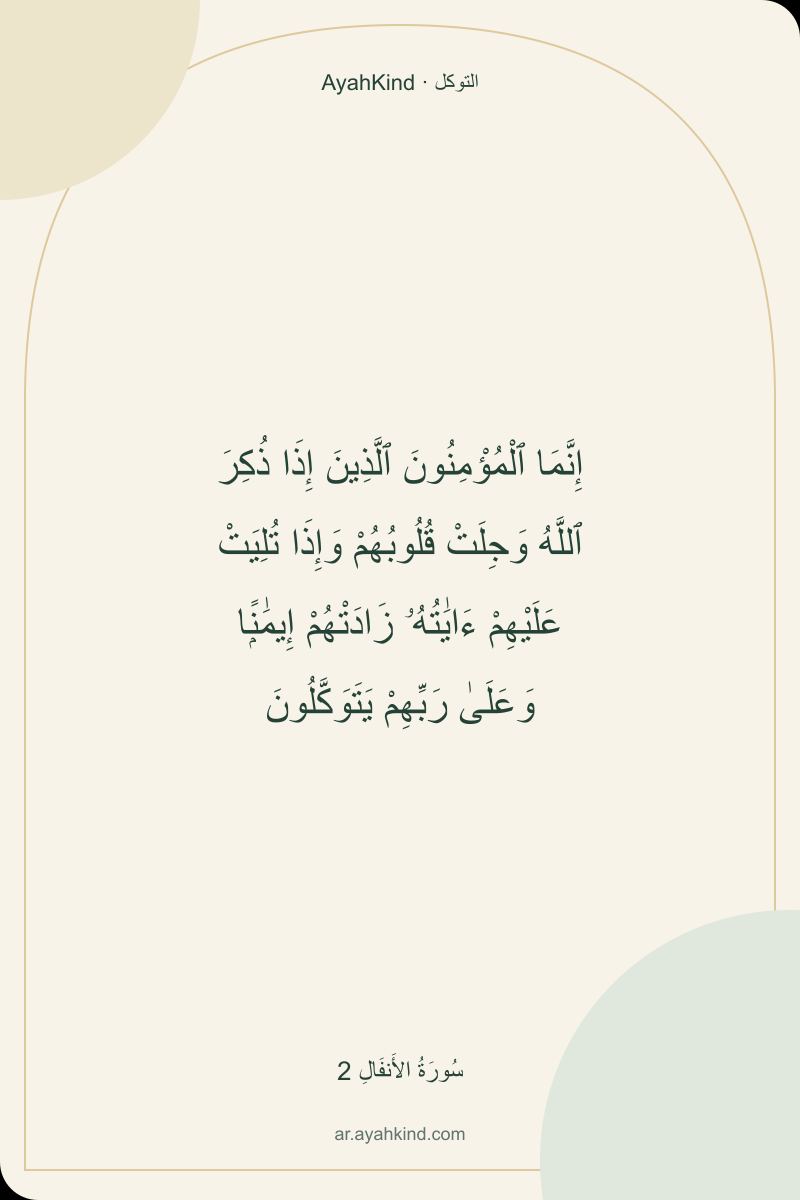 التوكل · AyahKind
إِنَّمَا ٱلْمُؤْمِنُونَ ٱلَّذِينَ إِذَا ذُكِرَ
ٱللَّهُ وَجِلَتْ قُلُوبُهُمْ وَإِذَا تُلِيَتْ
عَلَيْهِمْ ءَايَٰتُهُۥ زَادَتْهُمْ إِيمَٰنًۭا
وَعَلَىٰ رَبِّهِمْ يَتَوَكَّلُونَ
سُورَةُ الأَنفَالِ 2
ar.ayahkind.com